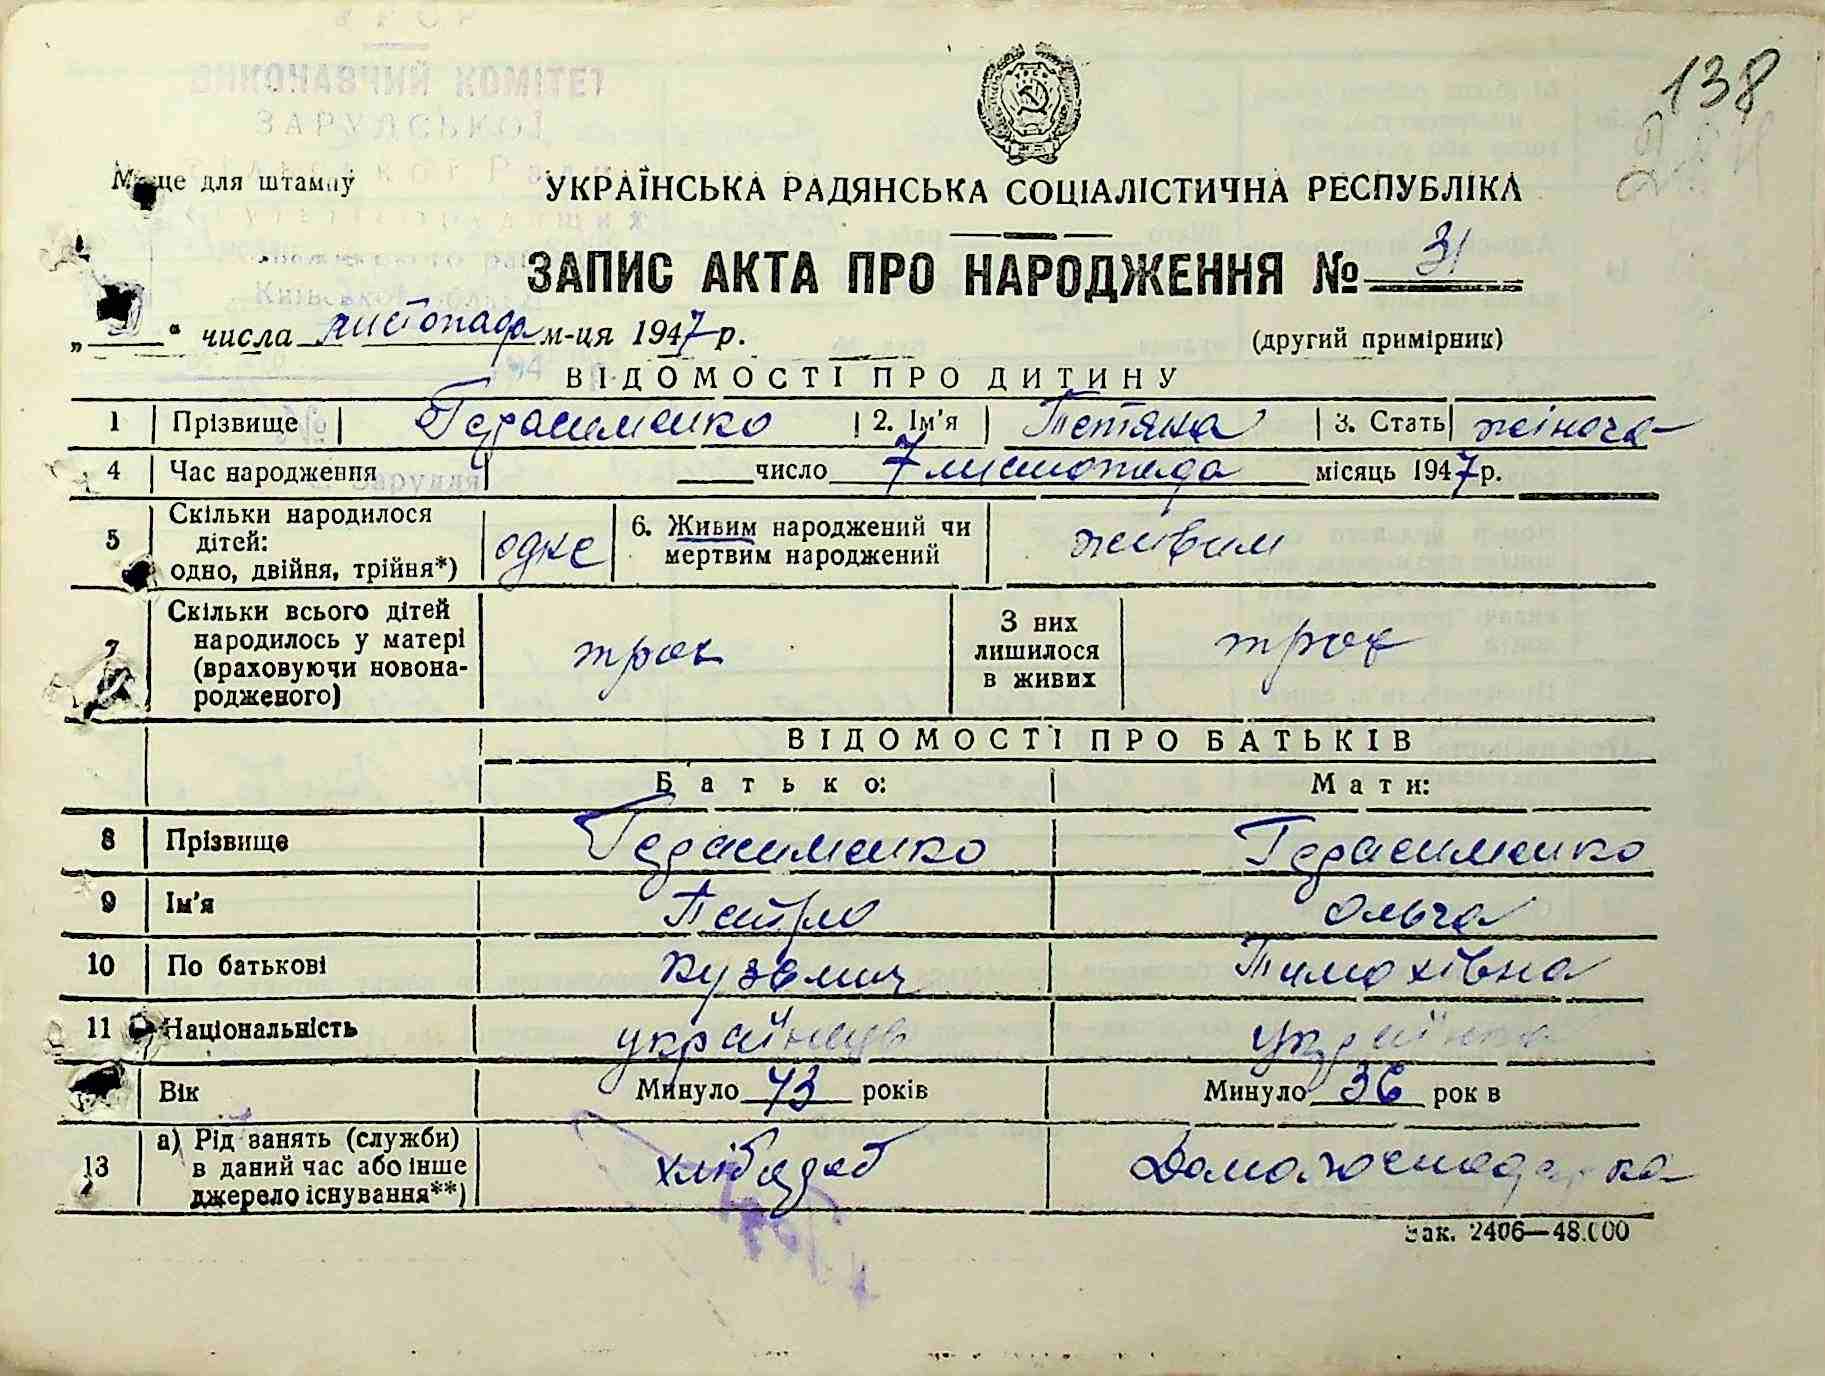 138
ВИКОНАВЧИЙ КОМІТЕТ
ЗАРУДСЬКОЇ
Місце для штампу
УКРАЇНСЬКА РАДЯНСЬКА СОЦІАЛІСТИЧНА РЕСПУБЛІКА
ЗАПИС АКТА ПРО НАРОДЖЕННЯ № 31
„ “ числа листопада м-ця 1947 р.
(другий примірник)
ВІДОМОСТІ ПРО ДИТИНУ
1 Прізвище Герасименко 2. Ім'я Тетяна 3. Стать жіноча
4 Час народження число 7 листопада місяць 1947 р.
5 Скільки народилося дітей: одно, двійня, трійня*) одне 6. Живим народжений чи мертвим народжений живим
7 Скільки всього дітей народилось у матері (враховуючи новонародженого) троє З них лишилося в живих троє
ВІДОМОСТІ ПРО БАТЬКІВ
Батько: Мати:
8 Прізвище Герасименко Герасименко
9 Ім'я Петро Ольга
10 По батькові Кузьмич Тимохівна
11 Національність українець українка
Вік Минуло 43 років Минуло 36 років
13 а) Рід занять (служби) в даний час або інше джерело існування**) хлібороб Домогосподарка
Зак. 2406—48.000